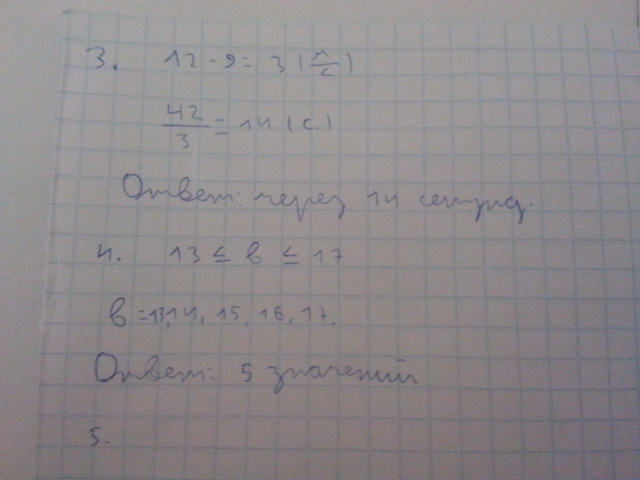 3. 12 - 9 = 3 (м/с)
42/3 = 14 (с)
Ответ: через 14 секунд.
4. 13 ≤ в ≤ 17
в = 13, 14, 15, 16, 17.
Ответ: 5 значений
5.